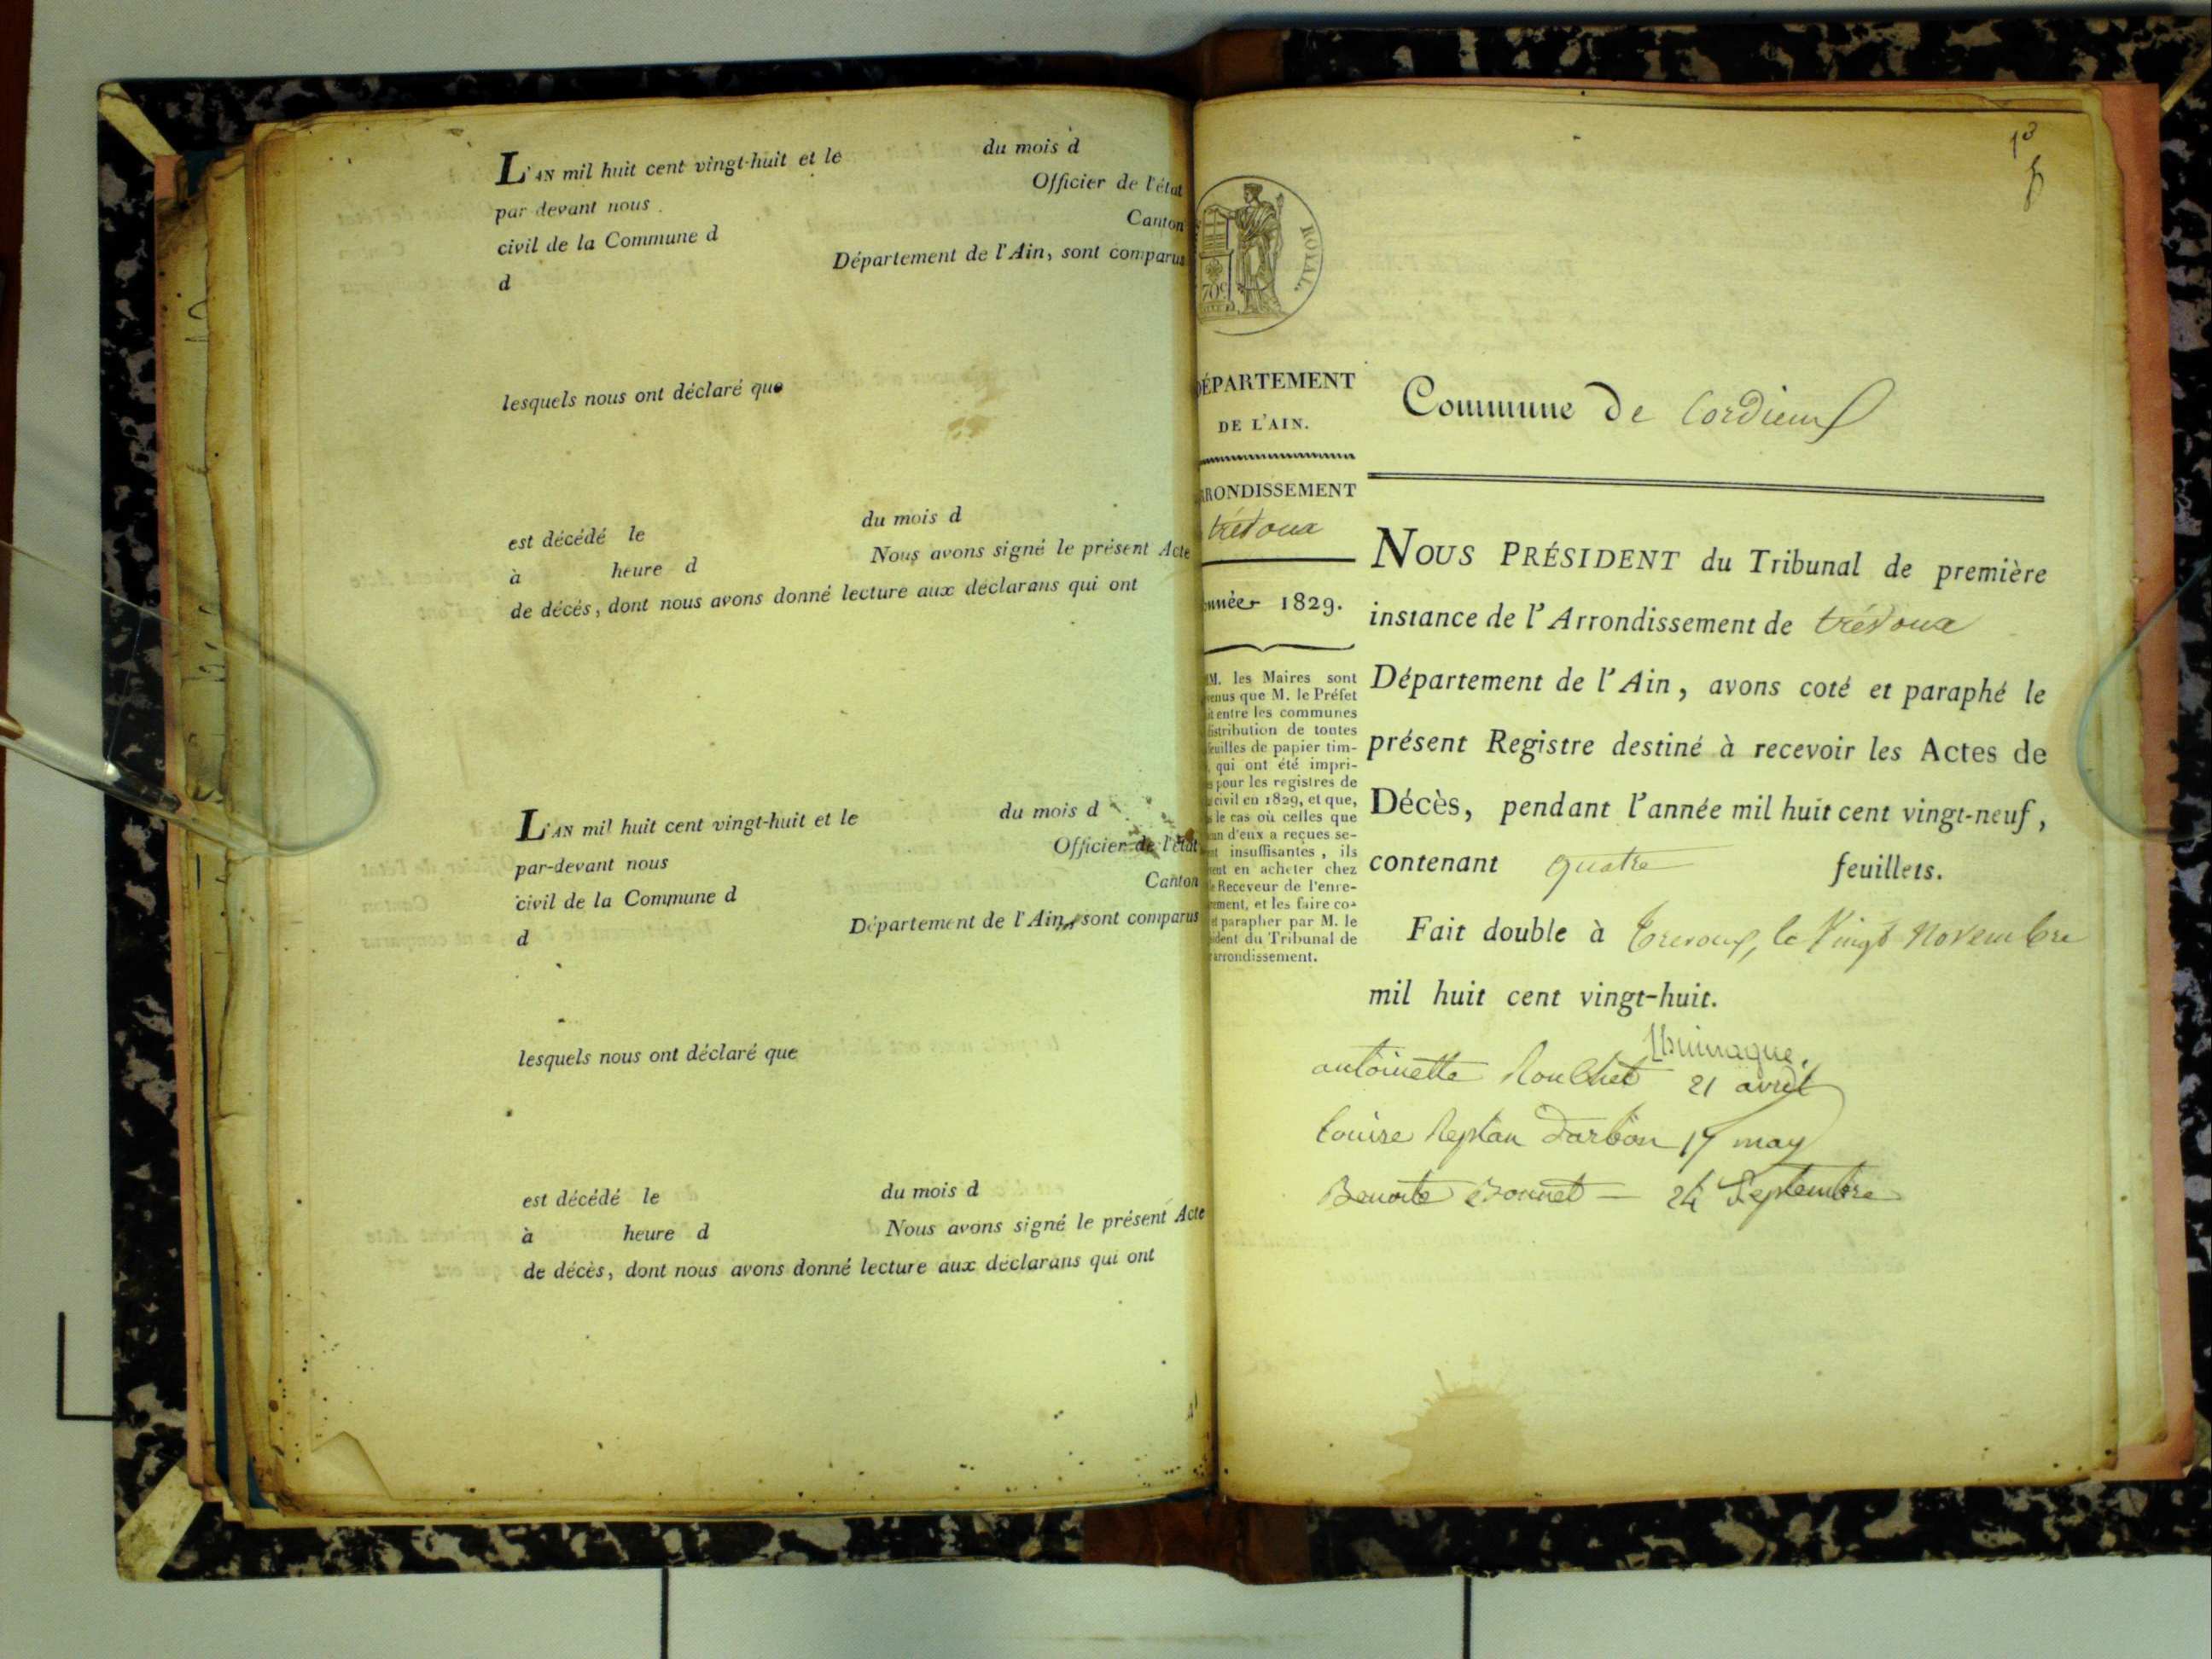 L'AN mil huit cent vingt-huit et le du mois d
par-devant nous Officier de l'état
civil de la Commune d Canton
d Département de l'Ain, sont comparus
lesquels nous ont déclaré que
est décédé le du mois d
à heure d Nous avons signé le présent Acte
de décès, dont nous avons donné lecture aux déclarans qui ont
L'AN mil huit cent vingt-huit et le du mois d
par-devant nous Officier de l'état
civil de la Commune d Canton
d Département de l'Ain, sont comparus
lesquels nous ont déclaré que
est décédé le du mois d
à heure d Nous avons signé le présent Acte
de décès, dont nous avons donné lecture aux déclarans qui ont
ROYAL
70c
DÉPARTEMENT
DE L'AIN.
RRONDISSEMENT
trévoux
année 1829.
M. les Maires sont
venus que M. le Préfet
it entre les communes
distribution de toutes
feuilles de papier tim-
, qui ont été impri-
s pour les registres de
civil en 1829, et que,
s le cas où celles que
un d'eux a reçues se-
nt insuffisantes, ils
ent en acheter chez
le Receveur de l'enre-
ement, et les faire co-
et parapher par M. le
ident du Tribunal de
arrondissement.
Commune de Cordieux
NOUS PRÉSIDENT du Tribunal de première
instance de l'Arrondissement de trévoux
Département de l'Ain, avons coté et paraphé le
présent Registre destiné à recevoir les Actes de
Décès, pendant l'année mil huit cent vingt-neuf,
contenant quatre feuillets.
Fait double à Trevoux, le Vingt Novembre
mil huit cent vingt-huit.
antoinette 21 avril
Louise Darbon 17 may
Benoite Bonnet — 24 Septembre